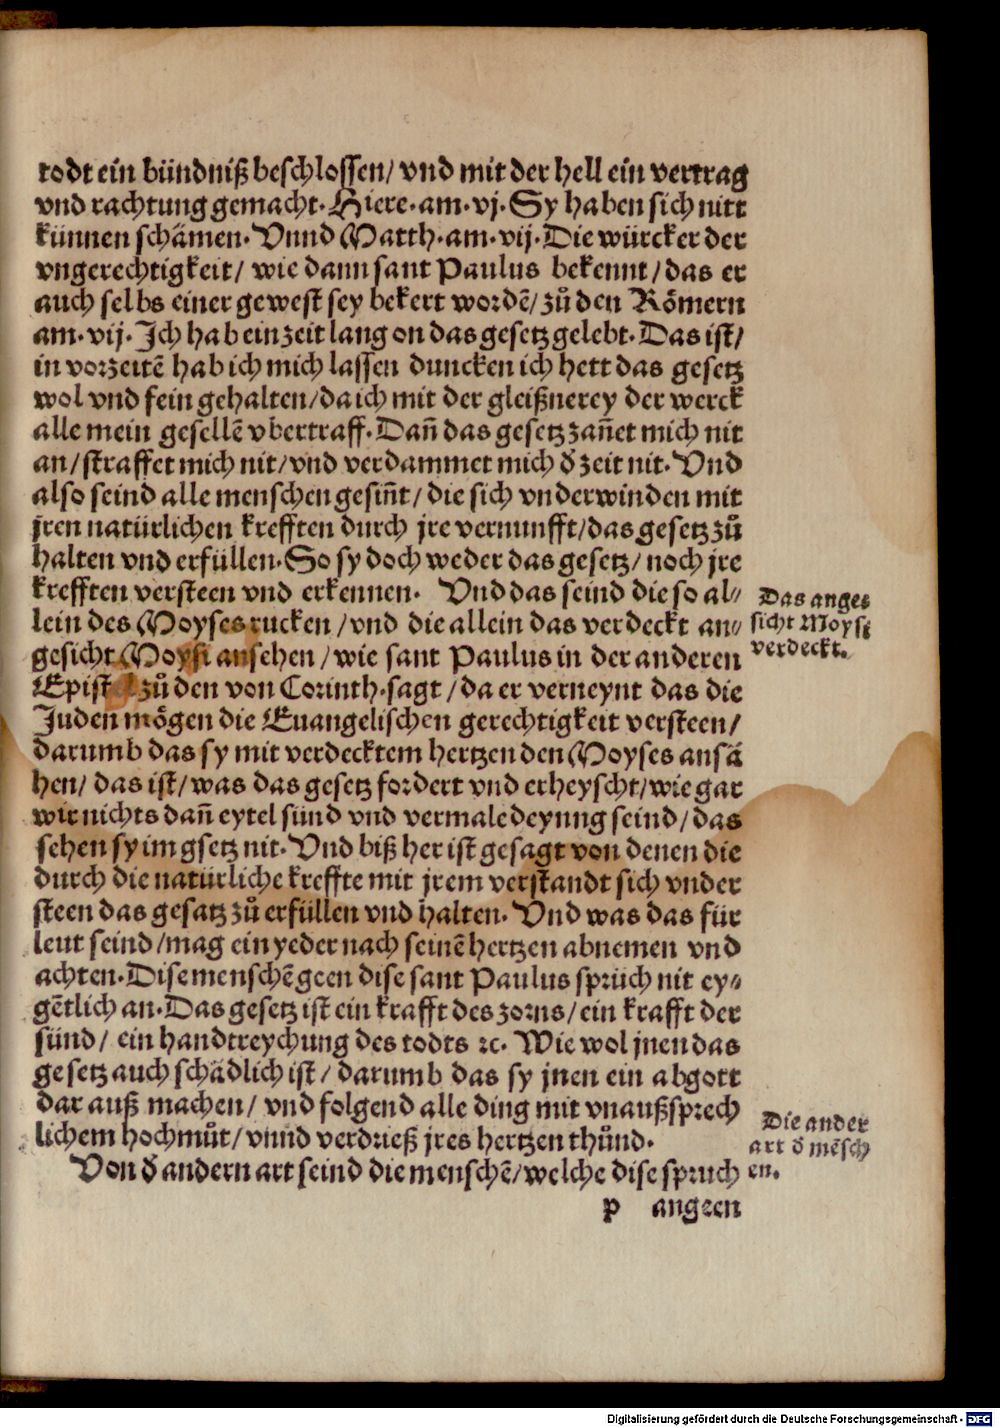 todt ein bündniß beschlossen/ vnd mit der hell ein vertrag
vnd rachtung gemacht. Hiere. am. vj. Sy haben sich nitt
künnen schämen. Vnnd Matth. am. vij. Die würcker der
vngerechtigkeit/ wie dann sant Paulus bekennt/ das er
auch selbs einer gewest sey bekert wordē/ zů den Römern
am. vij. Ich hab ein zeit lang on das gesetz gelebt. Das ist/
in vorzeitē hab ich mich lassen duncken ich hett das gesetz
wol vnd fein gehalten/ da ich mit der gleißnerey der werck
alle mein gesellē vbertraff. Dañ das gesetz zañet mich nit
an/ straffet mich nit/ vnd verdammet mich ð zeit nit. Vnd
also seind alle menschen gesiñt/ die sich vnderwinden mit
jren natürlichen krefften durch jre vernunfft/ das gesetz zů
halten vnd erfüllen. So sy doch weder das gesetz/ noch jre
krefften versteen vnd erkennen. Vnd das seind die so al⸗
Das anges
lein des Moyses rucken/ vnd die allein das verdeckt an⸗
sicht Moysi
gesicht Moysi ansehen/ wie sant Paulus in der anderen
verdeckt.
Epistel zů den von Corinth. sagt/ da er verneynt das die
Juden mögen die Euangelischen gerechtigkeit versteen/
darumb das sy mit verdecktem hertzen den Moyses ansä
hen/ das ist/ was das gesetz fordert vnd erheyscht/ wie gar
wir nichts dañ eytel sünd vnd vermaledeyung seind/ das
sehen sy im gsetz nit. Vnd biß her ist gesagt von denen die
durch die natürliche kreffte mit jrem verstandt sich vnder
steen das gesatz zů erfüllen vnd halten. Vnd was das für
leut seind/ mag ein yeder nach seinē hertzen abnemen vnd
achten. Dise menschē geen dise sant Paulus sprüch nit ey⸗
gētlich an. Das gesetz ist ein krafft des zorns/ ein krafft der
sünd/ ein handtreychung des todts ꝛc. Wie wol jnen das
gesetz auch schädlich ist/ darumb das sy jnen ein abgott
dar auß machen/ vnd folgend alle ding mit vnaußsprech
lichem hochmůt/ vnnd verdrieß jres hertzen thůnd.
Die ander
art ð mēsch
Von ð andern art seind die menschē/ welche dise spruch
en.
p angeen
Digitalisierung gefördert durch die Deutsche Forschungsgemeinschaft - DFG